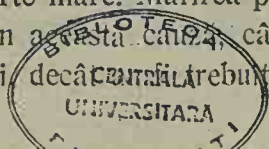 rte mare. Mărirea p
n această cauză, câ
i, decât trebuit
BIBLIOTECA
CENTRALĂ
UNIVERSITARA